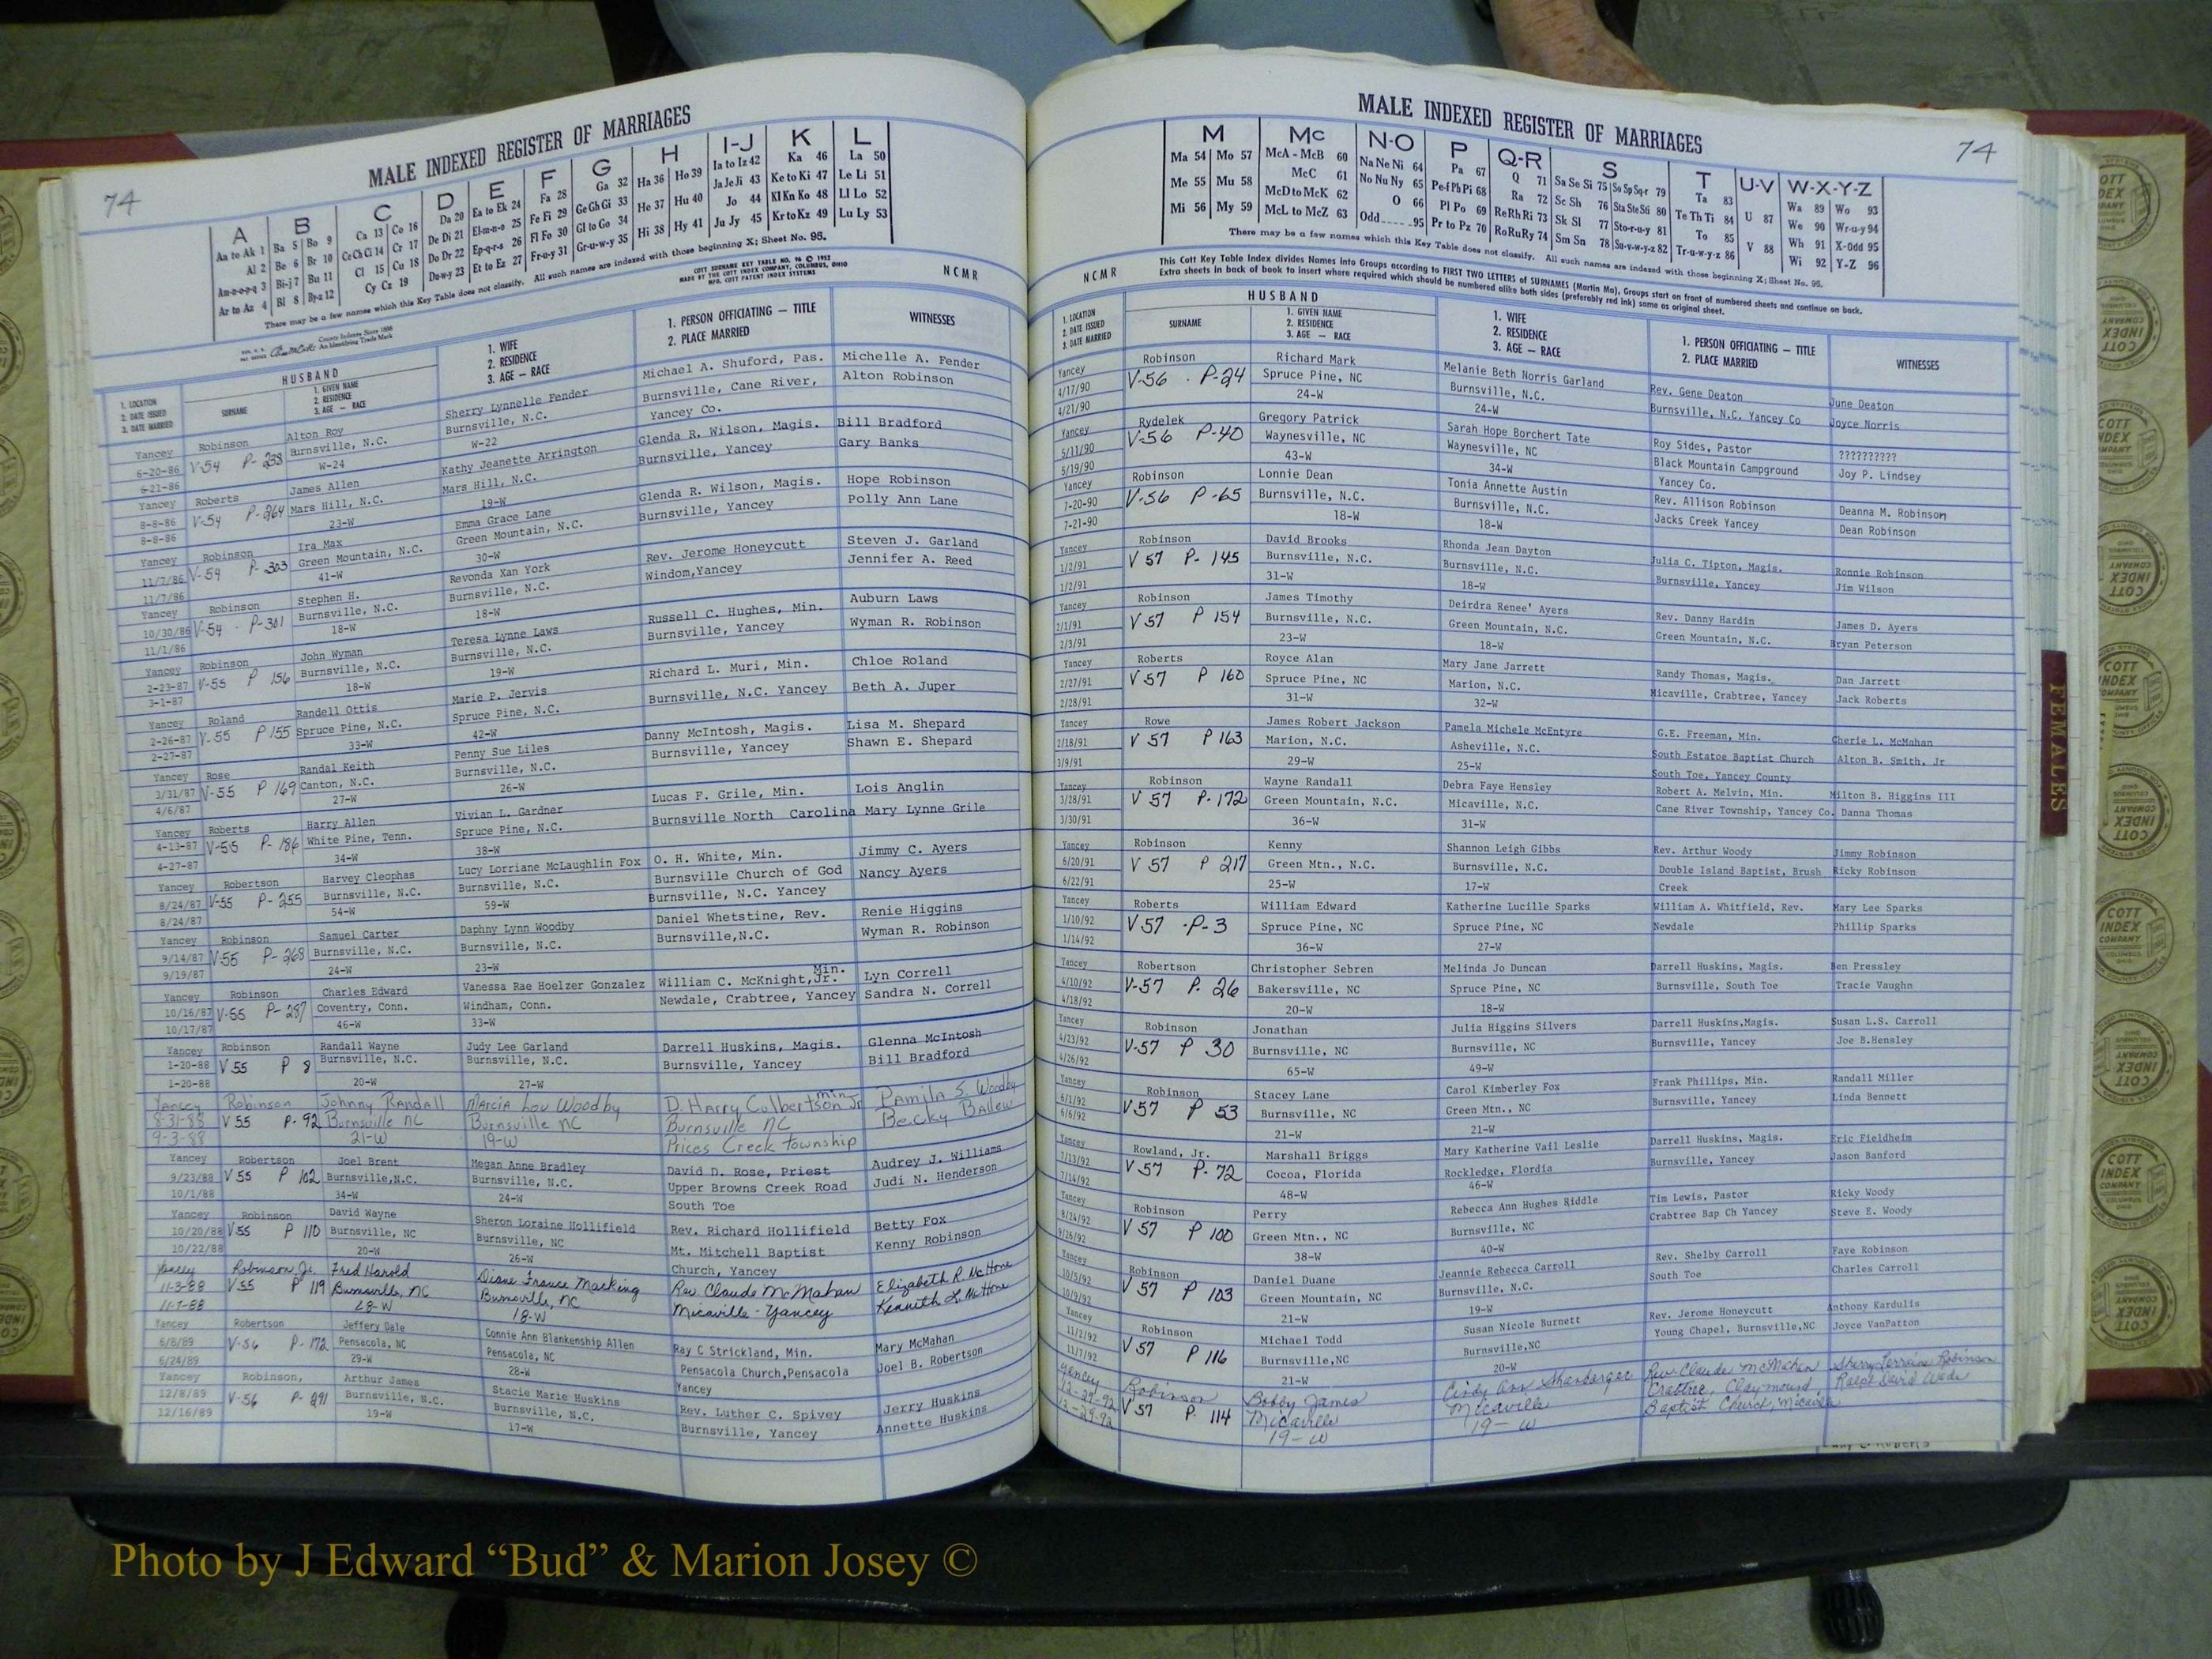 74
MALE INDEXED REGISTER OF MARRIAGES
A B C D E F G H I-J K L
Aa to Ak 1 Ba 5 Bo 9 Ca 13 Co 16 Da 20 Ea to Ek 24 Fa 28 Ga 32 Ha 36 Ho 39 Ia to Iz 42 Ka 46 La 50
Al 2 Be 6 Br 10 Ce Ch Ci 14 Cr 17 De Di 21 El-m-n-o 25 Fe Fi 29 Ge Gh Gi 33 He 37 Hu 40 Ja Je Ji 43 Ke to Ki 47 Le Li 51
Am-n-o-p-q 3 Bi-j 7 Bu 11 Cl 15 Cu 18 Do Dr 22 Ep-q-r-s 26 Fl Fo 30 Gl to Go 34 Hi 38 Hy 41 Jo 44 Kl Kn Ko 48 Ll Lo 52
Ar to Az 4 Bl 8 By-z 12 Cy Cz 19 Du-w-y 23 Et to Ez 27 Fr-u-y 31 Gr-u-w-y 35 Ju Jy 45 Kr to Kz 49 Lu Ly 53
There may be a few names which this Key Table does not classify. All such names are indexed with those beginning X; Sheet No. 95.
County Indexes Since 1888
An Identifying Trade Mark
COTT SURNAME KEY TABLE NO. 96 © 1952
MADE BY THE COTT INDEX COMPANY, COLUMBUS, OHIO
MFG. COTT PATENT INDEX SYSTEMS
NCMR
1. LOCATION
2. DATE ISSUED
3. DATE MARRIED
HUSBAND
SURNAME
1. GIVEN NAME
2. RESIDENCE
3. AGE — RACE
1. WIFE
2. RESIDENCE
3. AGE — RACE
1. PERSON OFFICIATING — TITLE
2. PLACE MARRIED
WITNESSES
Yancey Robinson Alton Roy Sherry Lynnelle Fender Michael A. Shuford, Pas. Michelle A. Fender
6-20-86 V-54 P-238 Burnsville, N.C. Burnsville, N.C. Burnsville, Cane River, Alton Robinson
6-21-86 W-24 W-22 Yancey Co.
Yancey Roberts James Allen Kathy Jeanette Arrington Glenda R. Wilson, Magis. Bill Bradford
8-8-86 V-54 P-264 Mars Hill, N.C. Mars Hill, N.C. Burnsville, Yancey Gary Banks
8-8-86 23-W 19-W
Yancey Robinson Ira Max Emma Grace Lane Glenda R. Wilson, Magis. Hope Robinson
11/7/86 V-54 P-303 Green Mountain, N.C. Green Mountain, N.C. Burnsville, Yancey Polly Ann Lane
11/7/86 41-W 30-W
Yancey Robinson Stephen H. Revonda Xan York Rev. Jerome Honeycutt Steven J. Garland
10/30/86 V-54 P-301 Burnsville, N.C. Burnsville, N.C. Windom,Yancey Jennifer A. Reed
11/1/86 18-W 18-W
Yancey Robinson John Wyman Teresa Lynne Laws Russell C. Hughes, Min. Auburn Laws
2-23-87 V-55 P 156 Burnsville, N.C. Burnsville, N.C. Burnsville, Yancey Wyman R. Robinson
3-1-87 18-W 19-W
Yancey Roland Randell Ottis Marie P. Jervis Richard L. Muri, Min. Chloe Roland
2-26-87 V-55 P 155 Spruce Pine, N.C. Spruce Pine, N.C. Burnsville, N.C. Yancey Beth A. Juper
2-27-87 33-W 42-W
Yancey Rose Randal Keith Penny Sue Liles Danny McIntosh, Magis. Lisa M. Shepard
3/31/87 V-55 P 169 Canton, N.C. Burnsville, N.C. Burnsville, Yancey Shawn E. Shepard
4/6/87 27-W 26-W
Yancey Roberts Harry Allen Vivian L. Gardner Lucas F. Grile, Min. Lois Anglin
4-13-87 V-55 P-186 White Pine, Tenn. Spruce Pine, N.C. Burnsville North Carolina Mary Lynne Grile
4-27-87 34-W 38-W
Yancey Robertson Harvey Cleophas Lucy Lorriane McLaughlin Fox O. H. White, Min. Jimmy C. Ayers
8/24/87 V-55 P-255 Burnsville, N.C. Burnsville, N.C. Burnsville Church of God Nancy Ayers
8/24/87 54-W 59-W Burnsville, N.C. Yancey
Yancey Robinson Samuel Carter Daphny Lynn Woodby Daniel Whetstine, Rev. Renie Higgins
9/14/87 V-55 P-268 Burnsville, N.C. Burnsville, N.C. Burnsville,N.C. Wyman R. Robinson
9/19/87 24-W 23-W
Yancey Robinson Charles Edward Vanessa Rae Hoelzer Gonzalez William C. McKnight,Jr. Min. Lyn Correll
10/16/87 V-55 P-287 Coventry, Conn. Windham, Conn. Newdale, Crabtree, Yancey Sandra N. Correll
10/17/87 46-W 33-W
Yancey Robinson Randall Wayne Judy Lee Garland Darrell Huskins, Magis. Glenna McIntosh
1-20-88 V 55 P 8 Burnsville, N.C. Burnsville, N.C. Burnsville, Yancey Bill Bradford
1-20-88 20-W 27-W
Yancey Robinson Johnny Randall Marcia Lou Woodby D. Harry Culbertson Jr min Pamila S. Woodby
8-31-88 V 55 P-92 Burnsville NC Burnsville NC Burnsville NC Becky Ballew
9-3-88 21-W 19-W Prices Creek township
Yancey Robertson Joel Brent Megan Anne Bradley David D. Rose, Priest Audrey J. Williams
9/23/88 V 55 P 102 Burnsville,N.C. Burnsville, N.C. Upper Browns Creek Road Judi N. Henderson
10/1/88 34-W 24-W South Toe
Yancey Robinson David Wayne Sheron Loraine Hollifield Rev. Richard Hollifield Betty Fox
10/20/88 V 55 P 110 Burnsville, NC Burnsville, NC Mt. Mitchell Baptist Kenny Robinson
10/22/88 20-W 26-W Church, Yancey
Yancey Robinson, Jr. Fred Harold Diane France Rev. Claude McMahan Elizabeth R. McHone
11-3-88 V 55 P 119 Burnsville, NC Burnsville, NC Micaville - Yancey Kenneth L. McHone
18-W
Yancey Robertson Jeffery Dale Connie Ann Blankenship Allen Ray C Strickland, Min. Mary McMahan
6/8/89 V-56 P-172 Pensacola, NC Pensacola, NC Pensacola Church,Pensacola Joel B. Robertson
6/24/89 29-W 28-W Yancey
Yancey Robinson, Arthur James Stacie Marie Huskins Rev. Luther C. Spivey Jerry Huskins
12/8/89 V-56 P-291 Burnsville, N.C. Burnsville, N.C. Burnsville, Yancey Annette Huskins
12/16/89 19-W 17-W
MALE INDEXED REGISTER OF MARRIAGES
74
M Mc N-O P Q-R S T U-V W-X-Y-Z
Ma 54 Mo 57 McA - McB 60 Na Ne Ni 64 Pa 67 Q 71 Sa Se Si 75 So Sp Sq-r 79 Ta 83 U 87 Wa 89 Wo 93
Me 55 Mu 58 McC 61 No Nu Ny 65 Pe-f Ph Pi 68 Ra 72 Sc Sh 76 Sta Ste Sti 80 Te Th Ti 84 V 88 We 90 Wr-u-y 94
Mi 56 My 59 McD to McK 62 O 66 Pl Po 69 Re Rh Ri 73 Sk Sl 77 Sto-r-u-y 81 To 85 Wh 91 X-Odd 95
McL to McZ 63 Odd 95 Pr to Pz 70 Ro Ru Ry 74 Sm Sn 78 Su-v-w-y-z 82 Tr-u-w-y-z 86 Wi 92 Y-Z 96
There may be a few names which this Key Table does not classify. All such names are indexed with those beginning X; Sheet No. 95.
NCMR
This Cott Key Table Index divides Names into Groups according to FIRST TWO LETTERS of SURNAMES (Martin Ma), Groups start on front of numbered sheets and continue on back.
Extra sheets in back of book to insert where required which should be numbered alike both sides (preferably red ink) same as original sheet.
1. LOCATION
2. DATE ISSUED
3. DATE MARRIED
HUSBAND
SURNAME
1. GIVEN NAME
2. RESIDENCE
3. AGE — RACE
1. WIFE
2. RESIDENCE
3. AGE — RACE
1. PERSON OFFICIATING — TITLE
2. PLACE MARRIED
WITNESSES
Yancey Robinson Richard Mark Melanie Beth Norris Garland Rev. Gene Deaton June Deaton
4/17/90 V-56 P-24 Spruce Pine, NC Burnsville, N.C. Burnsville, N.C. Yancey Co Joyce Norris
4/21/90 24-W 24-W
Yancey Rydelek Gregory Patrick Sarah Hope Borchert Tate Roy Sides, Pastor ??????????
5/11/90 V-56 P-40 Waynesville, NC Waynesville, NC Black Mountain Campground Joy P. Lindsey
5/19/90 43-W 34-W Yancey Co.
Yancey Robinson Lonnie Dean Tonia Annette Austin Rev. Allison Robinson Deanna M. Robinson
7-20-90 V-56 P-65 Burnsville, N.C. Burnsville, N.C. Jacks Creek Yancey Dean Robinson
7-21-90 18-W 18-W
Yancey Robinson David Brooks Rhonda Jean Dayton Julia C. Tipton, Magis. Ronnie Robinson
1/2/91 V 57 P-145 Burnsville, N.C. Burnsville, N.C. Burnsville, Yancey Jim Wilson
1/2/91 31-W 18-W
Yancey Robinson James Timothy Deirdra Renee' Ayers Rev. Danny Hardin James D. Ayers
2/1/91 V 57 P 154 Burnsville, N.C. Green Mountain, N.C. Green Mountain, N.C. Bryan Peterson
2/3/91 23-W 18-W
Yancey Roberts Royce Alan Mary Jane Jarrett Randy Thomas, Magis. Dan Jarrett
2/27/91 V 57 P 160 Spruce Pine, NC Marion, N.C. Micaville, Crabtree, Yancey Jack Roberts
2/28/91 31-W 32-W
Yancey Rowe James Robert Jackson Pamela Michele McEntyre G.E. Freeman, Min. Cherie L. McMahan
2/18/91 V 57 P 163 Marion, N.C. Asheville, N.C. South Estatoe Baptist Church Alton B. Smith, Jr
3/9/91 29-W 25-W South Toe, Yancey County
Yancey Robinson Wayne Randall Debra Faye Hensley Robert A. Melvin, Min. Milton B. Higgins III
3/28/91 V 57 P-172 Green Mountain, N.C. Micaville, N.C. Cane River Township, Yancey Co. Danna Thomas
3/30/91 36-W 31-W
Yancey Robinson Kenny Shannon Leigh Gibbs Rev. Arthur Woody Jimmy Robinson
6/20/91 V 57 P 217 Green Mtn., N.C. Burnsville, N.C. Double Island Baptist, Brush Ricky Robinson
6/22/91 25-W 17-W Creek
Yancey Roberts William Edward Katherine Lucille Sparks William A. Whitfield, Rev. Mary Lee Sparks
1/10/92 V 57 P-3 Spruce Pine, NC Spruce Pine, NC Newdale Phillip Sparks
1/14/92 36-W 27-W
Yancey Robertson Christopher Sebren Melinda Jo Duncan Darrell Huskins, Magis. Ben Pressley
4/10/92 V-57 P. 26 Bakersville, NC Spruce Pine, NC Burnsville, South Toe Tracie Vaughn
4/18/92 20-W 18-W
Yancey Robinson Jonathan Julia Higgins Silvers Darrell Huskins,Magis. Susan L.S. Carroll
4/23/92 V-57 P 30 Burnsville, NC Burnsville, NC Burnsville, Yancey Joe B.Hensley
4/26/92 65-W 49-W
Yancey Robinson Stacey Lane Carol Kimberley Fox Frank Phillips, Min. Randall Miller
6/1/92 V 57 P 53 Burnsville, NC Green Mtn., NC Burnsville, Yancey Linda Bennett
6/6/92 21-W 21-W
Yancey Rowland, Jr. Marshall Briggs Mary Katherine Vail Leslie Darrell Huskins, Magis. Eric Fieldheim
7/13/92 V-57 P-72 Cocoa, Florida Rockledge, Flordia Burnsville, Yancey Jason Banford
7/14/92 48-W 46-W
Yancey Robinson Perry Rebecca Ann Hughes Riddle Tim Lewis, Pastor Ricky Woody
8/24/92 V 57 P 100 Green Mtn., NC Burnsville, NC Crabtree Bap Ch Yancey Steve E. Woody
9/26/92 38-W 40-W
Yancey Robinson Daniel Duane Jeannie Rebecca Carroll Rev. Shelby Carroll Faye Robinson
10/5/92 V 57 P 103 Green Mountain, NC Burnsville, N.C. South Toe Charles Carroll
10/9/92 21-W 19-W
Yancey Robinson Michael Todd Susan Nicole Burnett Rev. Jerome Honeycutt Anthony Kardulis
11/2/92 V 57 P 116 Burnsville,NC Burnsville,NC Young Chapel, Burnsville,NC Joyce VanPatton
11/7/92 21-W 20-W
Yancey Robinson Bobby James Cindy Ann Rev. Claude McMahan Sherry Lorraine Robinson
V 57 P. 114 Micaville Micaville Crabtree, Claymound Ralph David Wade
19-W 19-W Baptist Church, Micaville
FEMALES
COTT INDEX COMPANY OHIO
Photo by J Edward “Bud” & Marion Josey ©